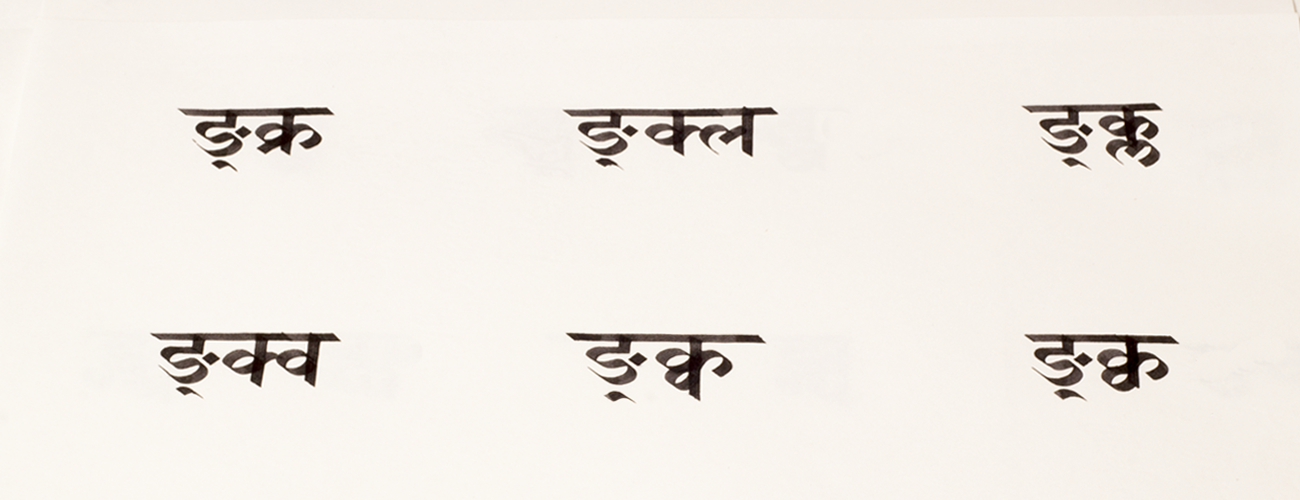 ङ्क्र ङ्क्ल ङ्क्ल
ङ्क्व ङ्क्व ङ्क्व